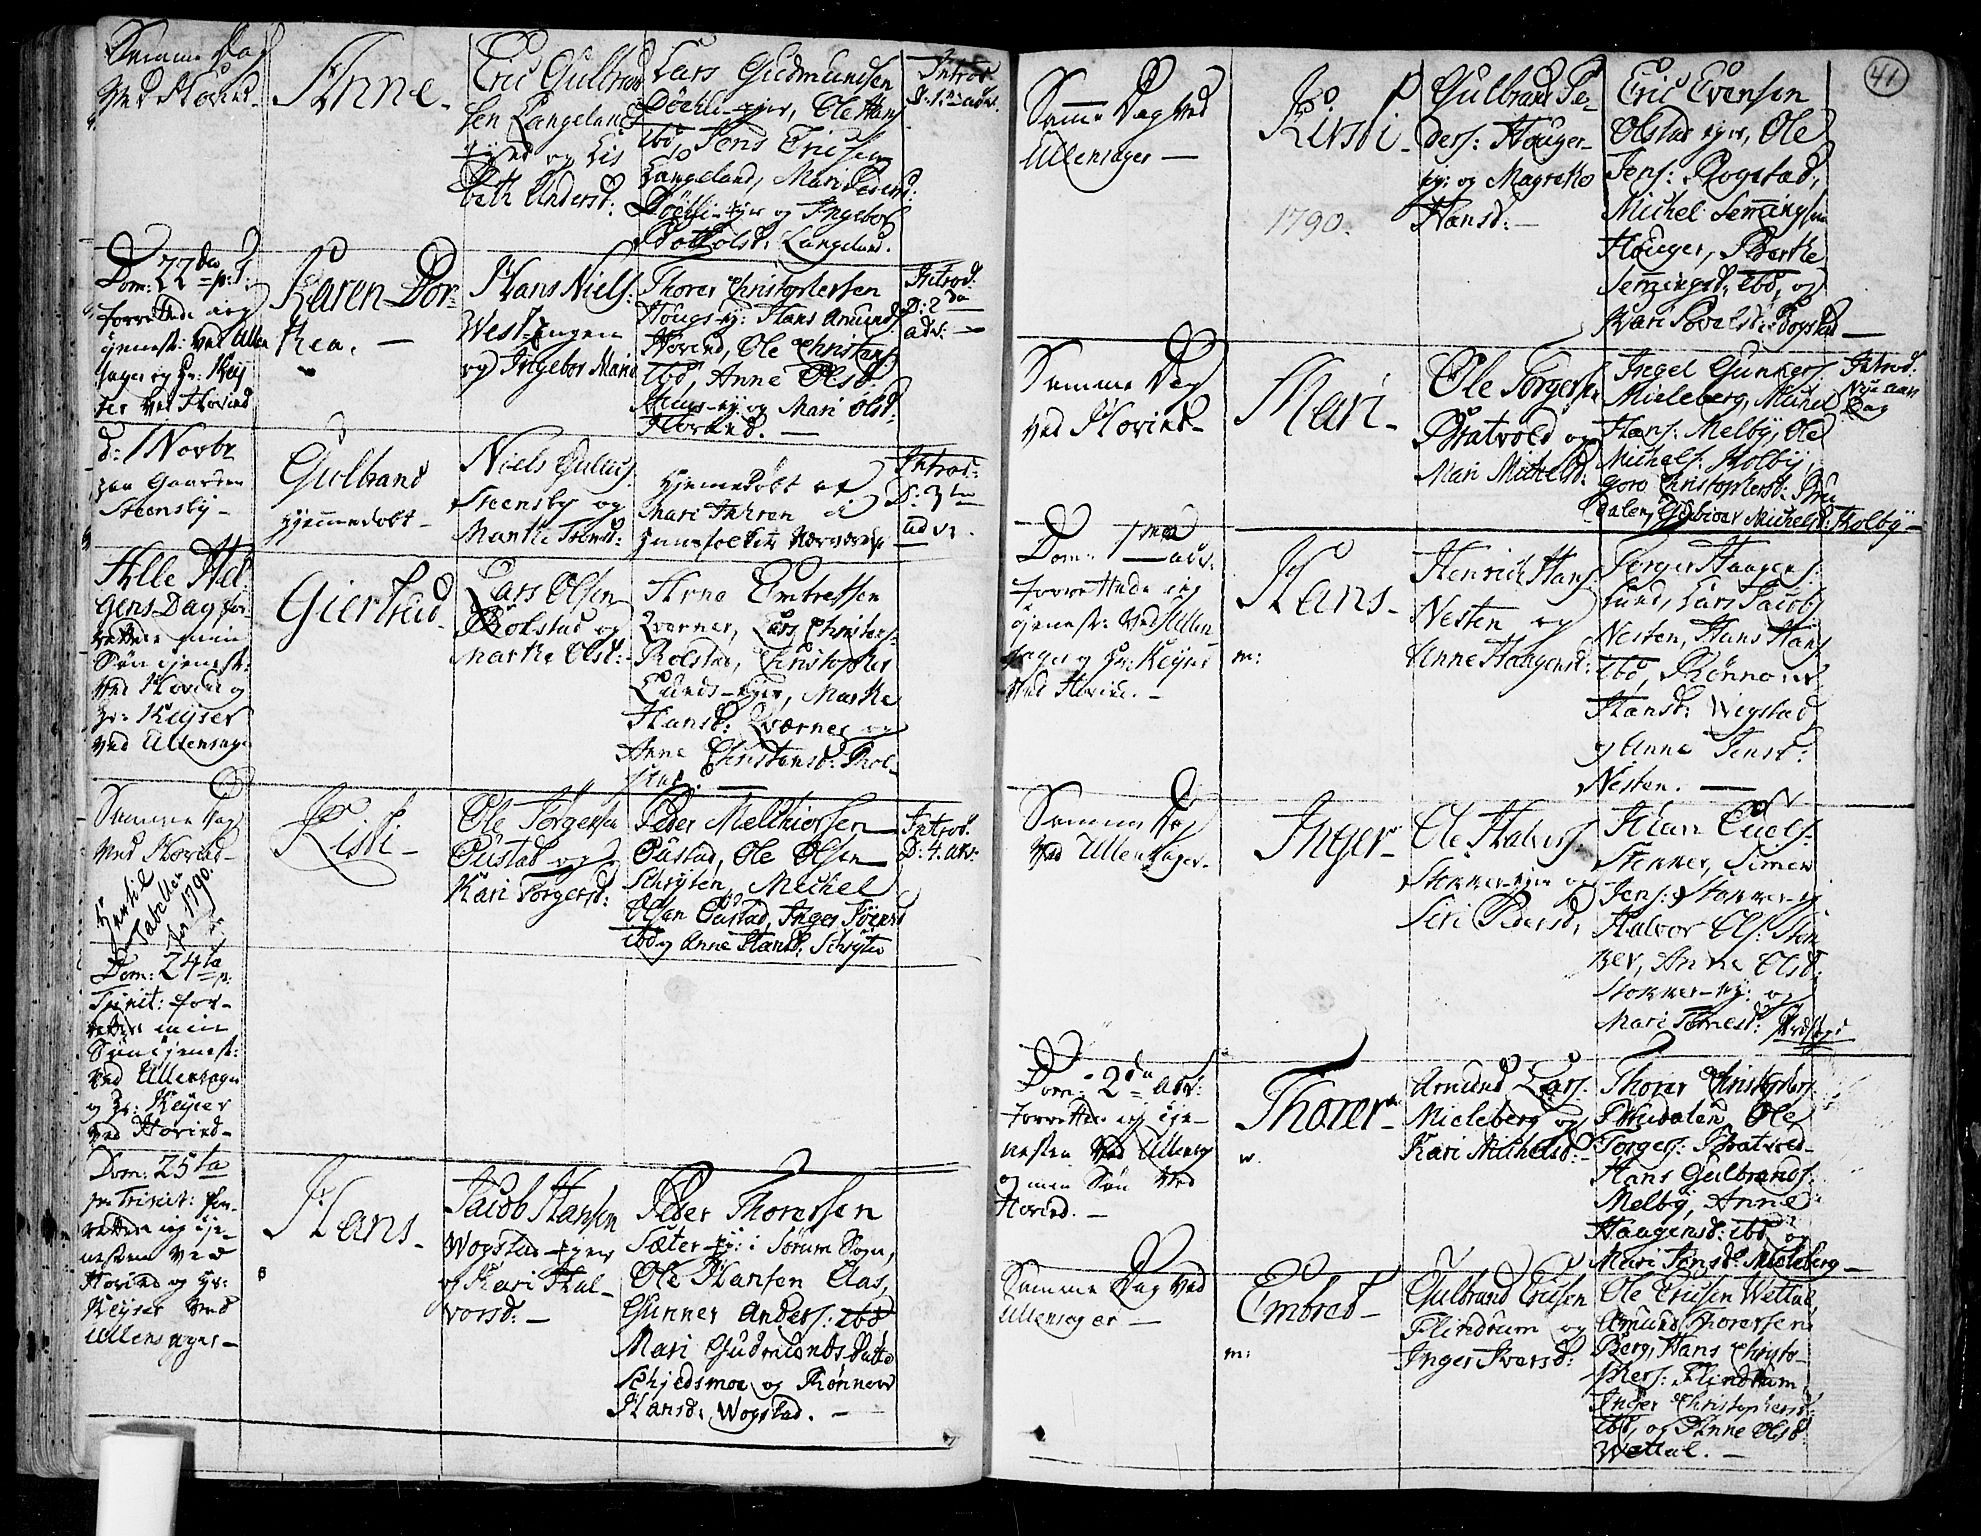 Samme Dag
ved Hovind-
Anne-
Eric Gulbrand
sen Langeland
ejer og Lis
beth Anders d:
Lars Gudmundsen
Døchli-ejer, Ole Hans
ibd, Jens Ericsen
Langeland, Mari Peders d:
Døchli-ejer og Ingebor
Langeland.
Introd:
Dom: 22den p: T:
forrettede jeg
tjenest: ved Ullen
sager og Hr: Key
ser ved Hovind
Karen Dor-
thea. —
Hans Niels:
West-engen
og Ingebor Marie
Thorer Christophersen
Hougs-ej: Hans Amunds:
Hovind, Ole Christens:
ibd, Anne Olsd:
Huus-ej: og Mari Olsd:
Hovind. —
Introd:
D: 2da
adv: —
d: 1 Novbr
paa Gaarden
Steensby -
Gulbrand
hjemmedøbt -
Niels
Steensby og
Marthe
hjemmedøbt af
Mari Iversen i
Introd:
D: 3tia
adv:
Alle Hel
gens-Dag for-
rettede min
Søn tjenest:
ved Hovind og
Hr: Keyser
ved Ullensager
Giertrud-
Lars Olsen
Rolstad og
Marthe Olsd:
Arne Embretsen
Qværner, Lars Christens:
Rolstad, Christopher
Lunds-ejer, Marthe
Hansd: Qværner og
Anne Christensd: Rol-
stad. —
Samme Dag
ved Hovind-
Hertil
Tabellen
for 1790.
Kisti-
Ole Torgersen
Oustad og
Kari Torgersd:
Peder Melchiorsen
Oustad, Ole Olsen
Schryten, Michel
Olsen Oustad, Inger
ibd og Anne Hansd: Schryten
Introd:
D: 4. adv:
Dom: 24ta p:
Trinit: for-
rettede min
Søn tjenest:
ved Ullensager
og Hr: Keyser
ved Hovind-
Dom: 25ta
p: Trinit: for-
rettede jeg tje-
nesten ved
Hovind og Hr:
Keyser ved
Ullensager-
Hans-
Jacob Hansen
Wogstad-ejer
og Kari Hal-
vorsd: —
Peder Thorersen
Sæter-ej: i Sørum Sogn,
Ole Hansen Aas,
Gunner Anders: ibd
Mari Gudmundsdatter
Schjedsmoe og Rønnov
Hansd: Wogstad. —
41
Samme Dag ved
Ullensager —
1790.
Kirsti-
Gulbrand Pe-
ders: Houger-
ej: og Magrethe
Hansd: —
Eric Evensen
Olstad ejer, Ole
Jens: Rogstad,
Michel Jemmingsen
Houger, Berthe
Jemmingsd: ibd, og
Kari Povelsd: Rogstad —
Samme Dag
ved Hovind-
Mari-
Ole Torgersen
Bratvold og
Mari Michelsd:
Ingel Gunners:
Mieleberg, Michel
Hans: Melby, Ole
Michels: Kolby,
Goro Christophersd: Bru
dalen, Gubior Michelsd: Kolby -
Introd:
Nyt aars
Dag
Dom: 1ma adv:
forrettede jeg
tjenest: ved Ullen
sager og Hr: Keyser
ved Hovind. —
Hans-
m:
Henrich Hans:
Nesten og
Anne Haagensd:
Torger Haagens:
Lund, Lars Jacobs:
Nesten, Hans Hans:
ibd, Rønnov
Hansd: Wigstad
og Anne Jensd:
Nesten. —
Samme Dag
ved Ullensager-
Inger-
Ole Halvors:
Stokker-ejer og
Siri Pedersd:
Stenner, Simen
Jens: Stokker-ej:
Halvor Ols: Sten
ner, Anne Olsd:
Stokker-ej: og
Mari Tomesd:
Dom: 2da adv:
forrettede jeg tje-
nesten ved Ullensag
og min Søn ved
Hovind. —
Thorer-
Amund Lars:
Mieleberg og
Kari Michelsd: -
Thorer Christophers:
Brudalen, Ole
Torgers: Bratvold-
Hans Gulbrands:
Melby, Anne
Haagensd: ibd og
Mari Jensd: Mieleberg -
Samme Dag ved
Ullensager —
Embret-
m:
Gulbrand Ericsen
Flindrum og
Inger Iversd:
Ole Ericsen Wettal,
Amund Thorersen
Berg, Hans Christo-
phers: Flindrum
Inger Christophersd:
ibd, og Anne Olsd:
Wettal. —